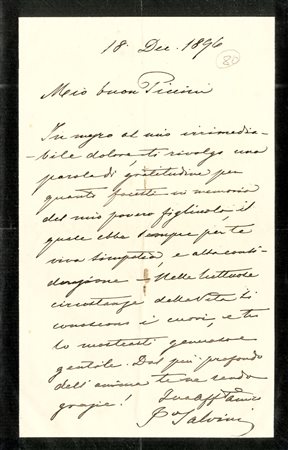 18. Dec. 1896
80
Mio buon Piccini
In mezzo al mio irrimedia-
bile dolore, ti rivolgo una
parola di gratitudine per
quanto faceste in memoria
del mio povero figliuolo; il
quale ebbe sempre per te
viva simpatia, e alta consi-
derazione — Nelle luttuose
circostanze della vita si
conoscono i cuori, e tu
lo mostrasti generoso e
gentile. Dal più profondo
dell'anima te ne rendo
grazie!
Tuo Aff. Amico
T. Salvini